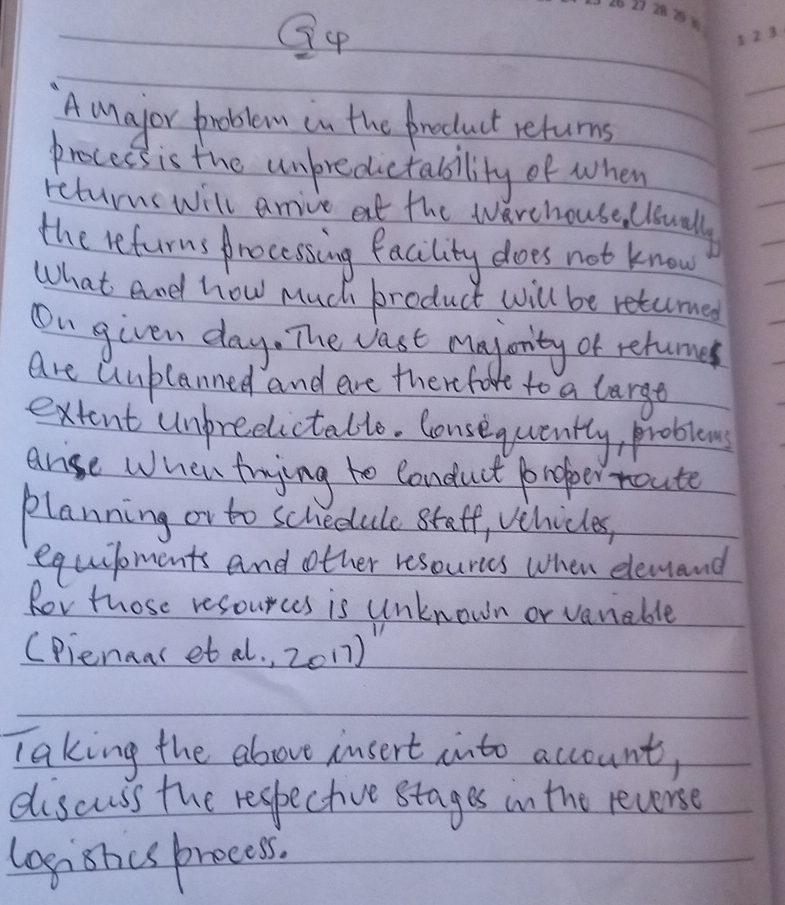 Q4
"A Major problem in the product returns
process is the unpredictability of when
returns will arrive at the warehouse. Usually
the returns processing facility does not know
what and how much product will be returned
On given day. The vast majority of returnes
are unplanned and are therefore to a large
extent unpredictable. Consequently, problems
arise when trying to conduct proper route
planning or to schedule staff, vehicles,
equipments and other resources when demand
for those resources is unknown or variable"
(Pienaar et al., 2017)
Taking the above insert into account,
discuss the respective stages in the reverse
logistics process.
26 27 28 29 30
1 2 3